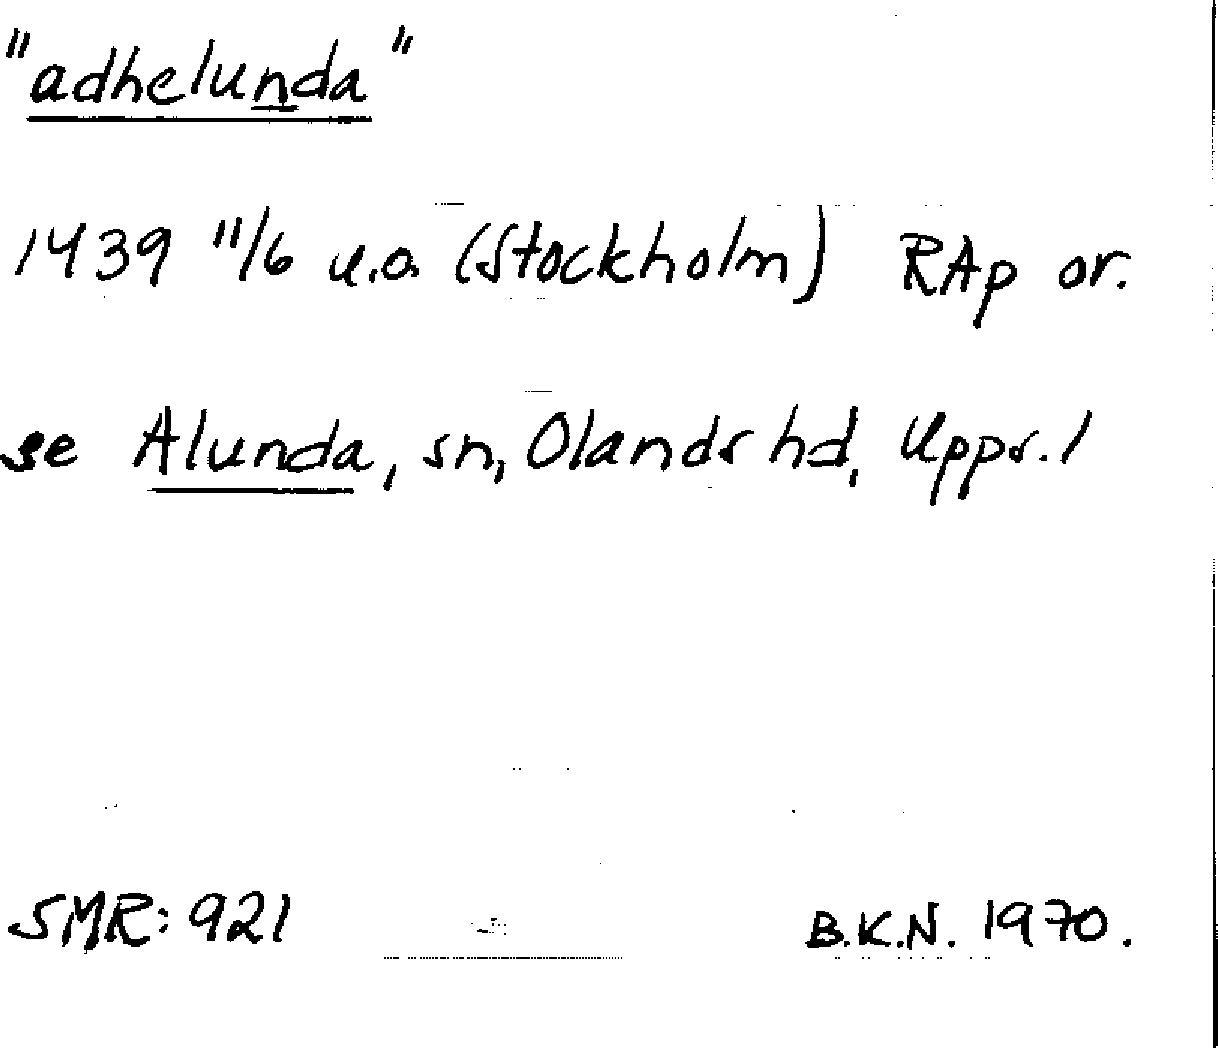 "adhelunda"
1439 11/6 u.o. (Stockholm) RAp or.
se Alunda, sn, Olands hd, Upps. l
SMR: 921 B.K.N. 1970.